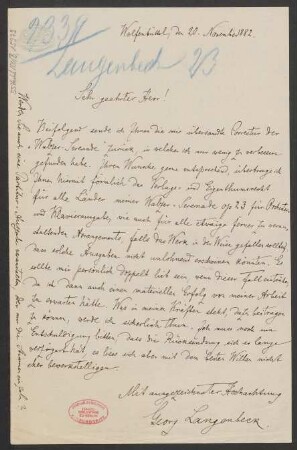 Wolfenbüttel, den 20. November 1882.
Langenbeck
Sehr geehrter Herr!
Beifolgend sende ich Ihnen die mir übersandte Correctur der
"Walzer-Serenade" zurück, in welcher ich nur wenig zu verbessern
gefunden habe. Ihrem Wunsche gern entsprechend, übertrage ich
Ihnen hiermit förmlich das Verlags- und Eigenthumsrecht
für alle Länder meiner Walzer-Serenade op. 23 für Orchester
und Klavierausgabe, wie auch für alle etwaige ferner zu veran-
staltenden Arrangements, falls das Werk in der Weise gefallen sollte,
dass solche Ausgaben nicht unlohnend erscheinen könnten. Es
sollte mir persönlich doppelt lieb sein, wenn dieser Fall einträte,
da ich dann auch einen materiellen Erfolg von meiner Arbeit
zu erwarten hätte. Was in meinen Kräften steht, dazu beitragen
zu können, werde ich sicherlich thun. Ich muss noch um
Entschuldigung bitten, dass die Rücksendung sich so lange
verzögert hat, es liess sich aber mit dem besten Willen nicht
eher bewerkstelligen.
Mit ausgezeichneter Hochachtung
Georg Langenbeck.